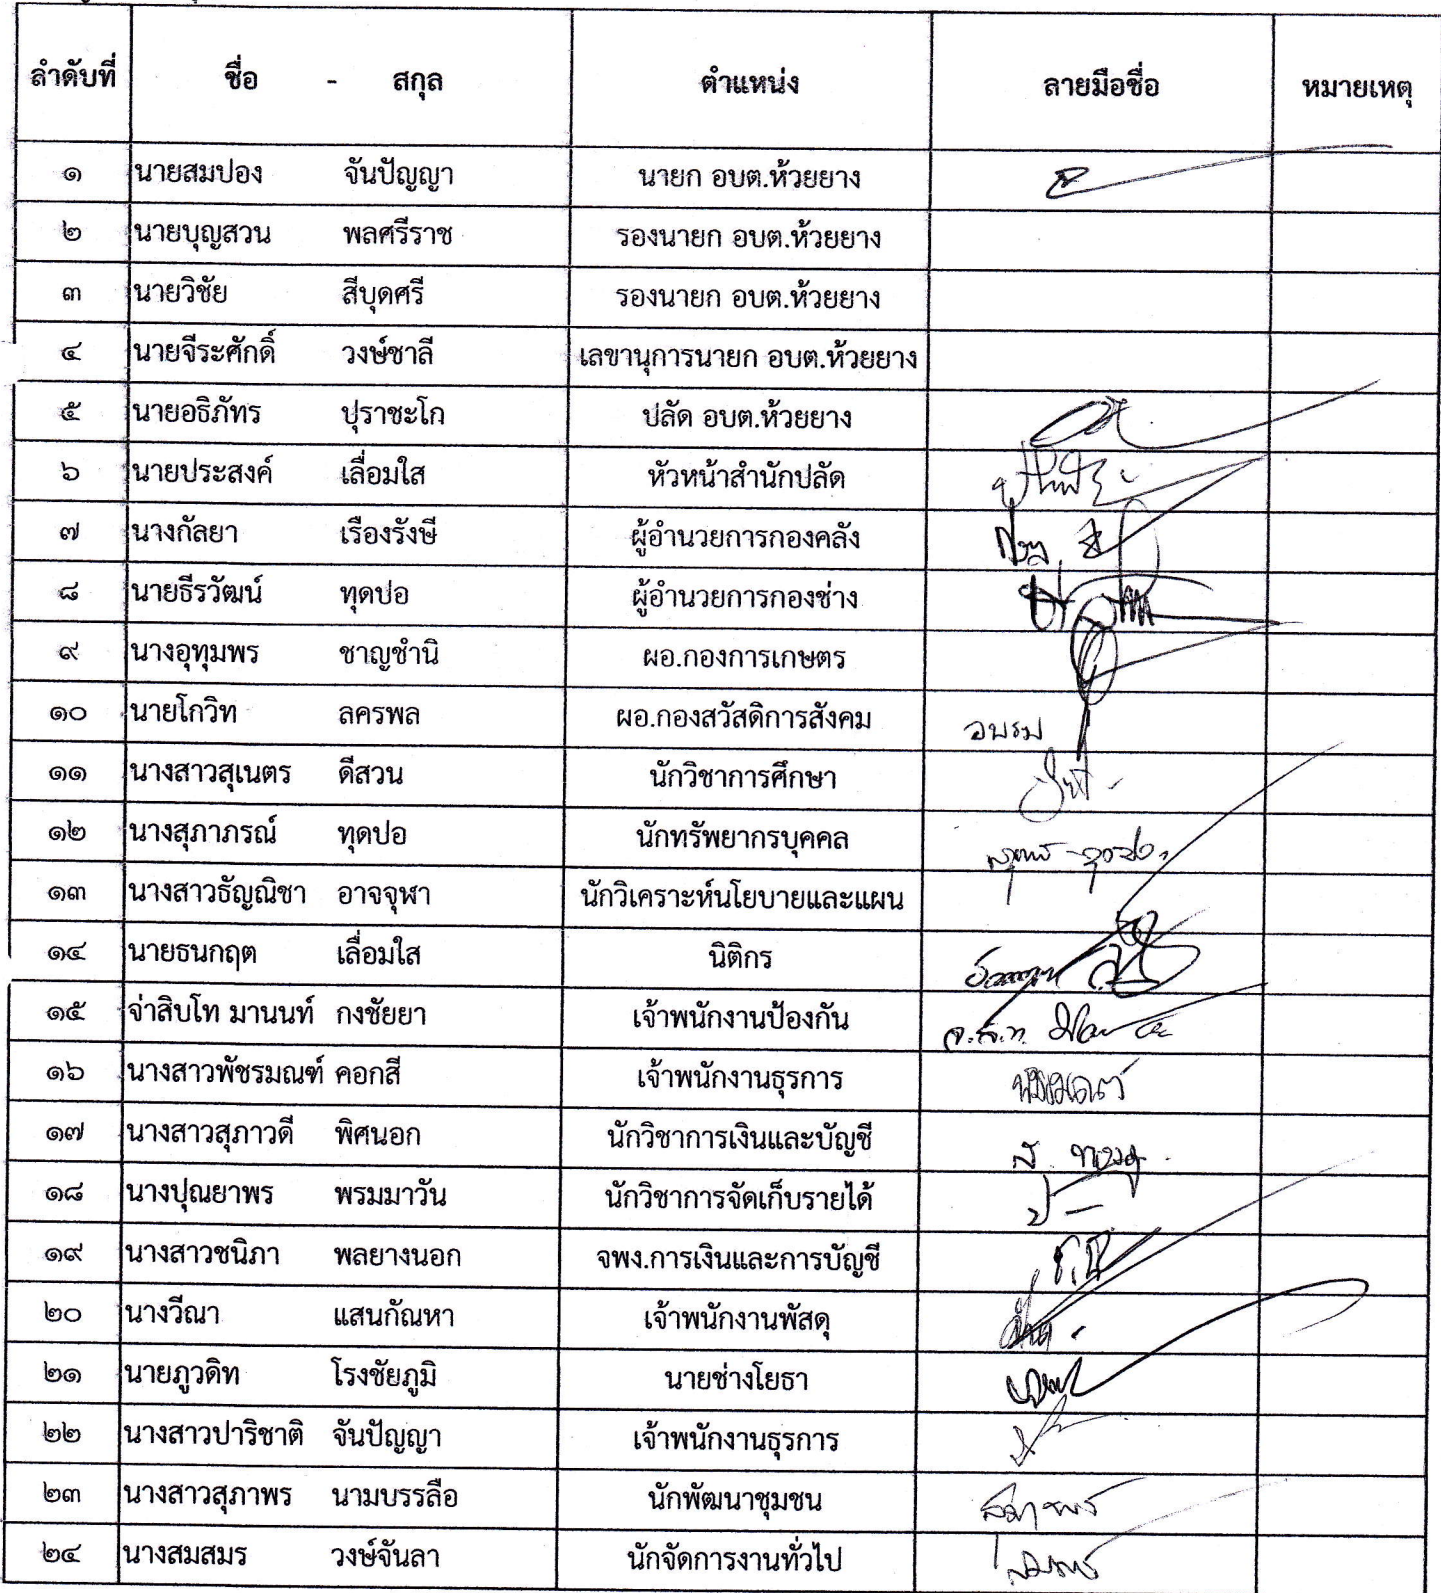 ลำดับที่ ชื่อ - สกุล ตำแหน่ง ลายมือชื่อ หมายเหตุ
๑ นายสมปอง จันปัญญา นายก อบต.ห้วยยาง
๒ นายบุญสวน พลศรีราช รองนายก อบต.ห้วยยาง
๓ นายวิชัย สีบุดศรี รองนายก อบต.ห้วยยาง
๔ นายจีระศักดิ์ วงษ์ชาลี เลขานุการนายก อบต.ห้วยยาง
๕ นายอธิภัทร ปุราชะโก ปลัด อบต.ห้วยยาง
๖ นายประสงค์ เลื่อมใส หัวหน้าสำนักปลัด
๗ นางกัลยา เรืองรังษี ผู้อำนวยการกองคลัง
๘ นายธีรวัฒน์ ทุดปอ ผู้อำนวยการกองช่าง
๙ นางอุทุมพร ชาญชำนิ ผอ.กองการเกษตร
๑๐ นายโกวิท ลครพล ผอ.กองสวัสดิการสังคม อบรม
๑๑ นางสาวสุเนตร ดีสวน นักวิชาการศึกษา
๑๒ นางสุภาภรณ์ ทุดปอ นักทรัพยากรบุคคล
๑๓ นางสาวธัญณิชา อาจจุฬา นักวิเคราะห์นโยบายและแผน
๑๔ นายธนกฤต เลื่อมใส นิติกร
๑๕ จ่าสิบโท มานนท์ กงชัยยา เจ้าพนักงานป้องกัน จ.ส.ท.
๑๖ นางสาวพัชรมณฑ์ คอกสี เจ้าพนักงานธุรการ
๑๗ นางสาวสุภาวดี พิศนอก นักวิชาการเงินและบัญชี
๑๘ นางปุณยาพร พรมมาวัน นักวิชาการจัดเก็บรายได้
๑๙ นางสาวชนิภา พลยางนอก จพง.การเงินและการบัญชี
๒๐ นางวีณา แสนกัณหา เจ้าพนักงานพัสดุ
๒๑ นายภูวดิท โรงชัยภูมิ นายช่างโยธา
๒๒ นางสาวปาริชาติ จันปัญญา เจ้าพนักงานธุรการ
๒๓ นางสาวสุภาพร นามบรรลือ นักพัฒนาชุมชน
๒๔ นางสมสมร วงษ์จันลา นักจัดการงานทั่วไป